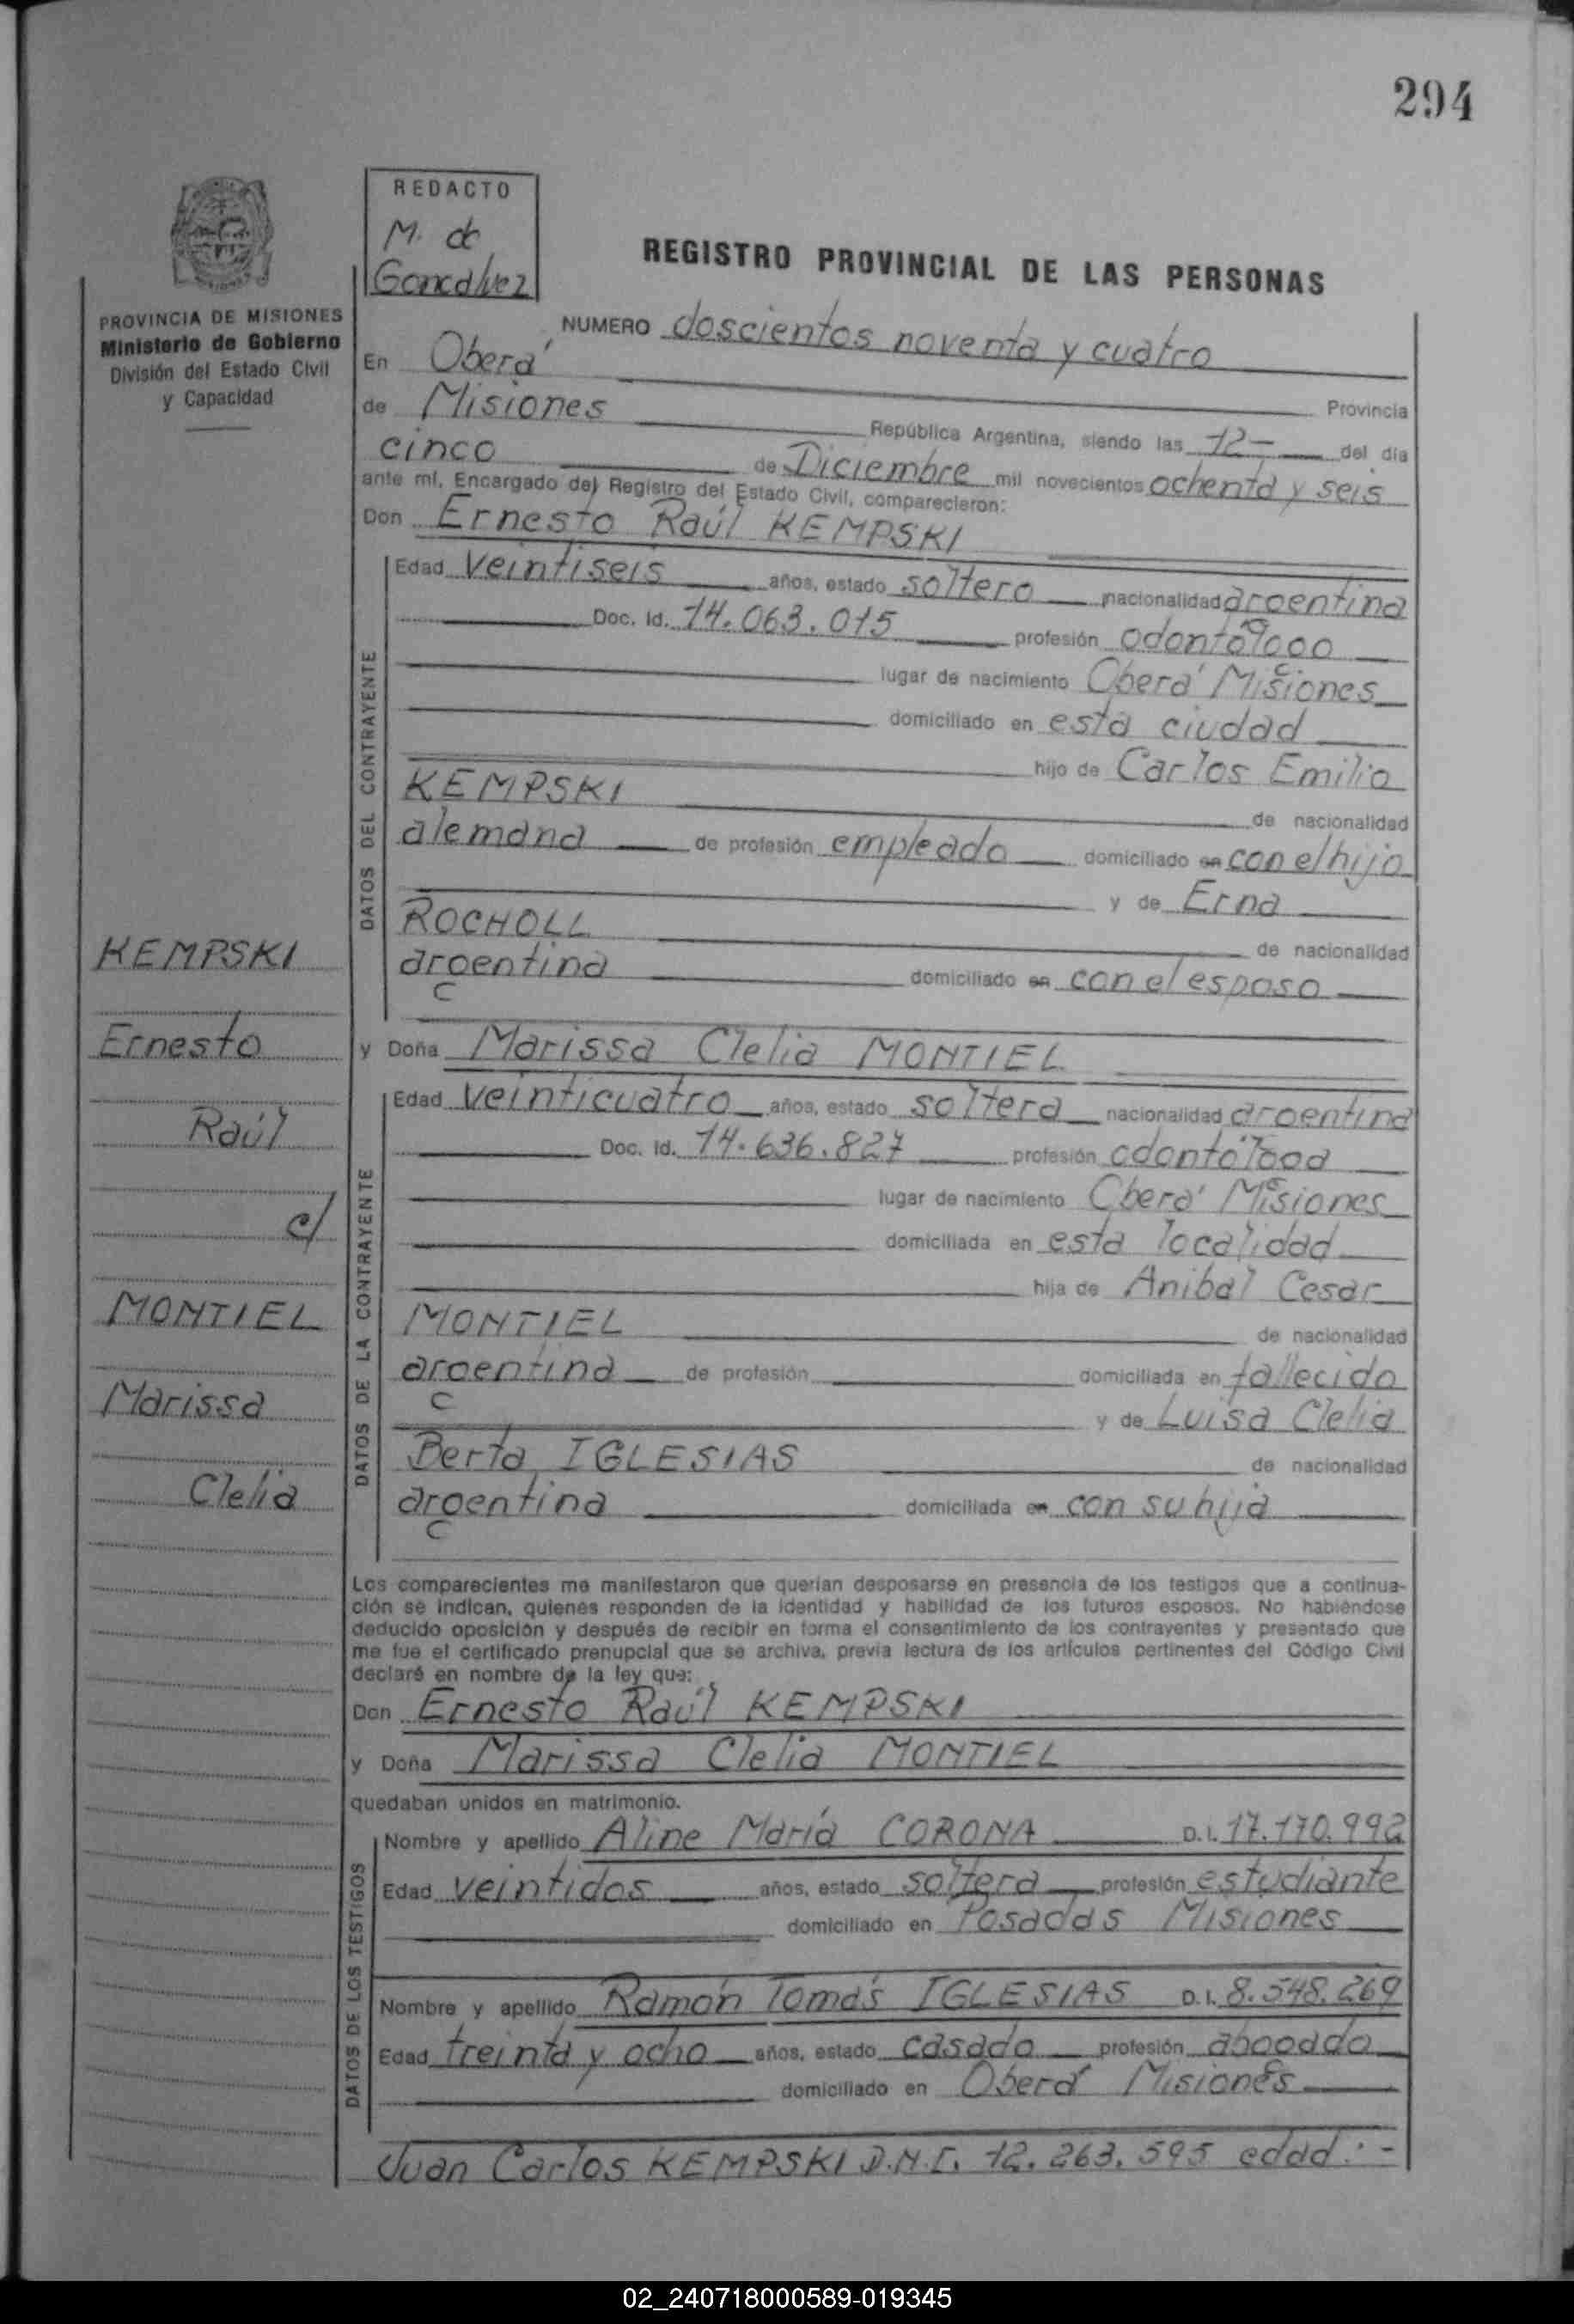 294
REDACTO
M. de
Goncalvez
REGISTRO PROVINCIAL DE LAS PERSONAS
PROVINCIA DE MISIONES
Ministerio de Gobierno
División del Estado Civil
y Capacidad
NUMERO doscientos noventa y cuatro
En Oberá
Provincia
de Misiones República Argentina, siendo las 12- del día
cinco de Diciembre mil novecientos ochenta y seis
ante mí, Encargado del Registro del Estado Civil, comparecieron:
Don Ernesto Raúl KEMPSKI
DATOS DEL CONTRAYENTE
Edad veintiseis años, estado soltero nacionalidad argentina
Doc. Id. 14.063.015 profesión odontólogo
lugar de nacimiento Oberá Misiones
domiciliado en esta ciudad
hijo de Carlos Emilio
KEMPSKI de nacionalidad
alemana de profesión empleado domiciliado en con el hijo
y de Erna
ROCHOLL de nacionalidad
argentina domiciliado en con el esposo
y Doña Marissa Clelia MONTIEL
DATOS DE LA CONTRAYENTE
Edad veinticuatro años, estado soltera nacionalidad argentina
Doc. Id. 14.636.827 profesión odontóloga
lugar de nacimiento Oberá Misiones
domiciliada en esta localidad
hija de Anibal Cesar
MONTIEL de nacionalidad
argentina de profesión domiciliada en fallecido
y de Luisa Clelia
Berta IGLESIAS de nacionalidad
argentina domiciliada en con su hija
KEMPSKI
Ernesto
Raúl
c/
MONTIEL
Marissa
Clelia
Los comparecientes me manifestaron que querían desposarse en presencia de los testigos que a continua-
ción se indican, quienes responden de la identidad y habilidad de los futuros esposos. No habiéndose
deducido oposición y después de recibir en forma el consentimiento de los contrayentes y presentado que
me fue el certificado prenupcial que se archiva, previa lectura de los artículos pertinentes del Código Civil
declaré en nombre de la ley que:
Don Ernesto Raúl KEMPSKI
y Doña Marissa Clelia MONTIEL
quedaban unidos en matrimonio.
DATOS DE LOS TESTIGOS
Nombre y apellido Aline María CORONA D.I. 17.170.992
Edad veintidos años, estado soltera profesión estudiante
domiciliado en Posadas Misiones
Nombre y apellido Ramón Tomás IGLESIAS D.I. 8.548.269
Edad treinta y ocho años, estado casado profesión abogado
domiciliado en Oberá Misiones
Juan Carlos KEMPSKI D.N.I. 12.263.595 edad:-
02_240718000589-019345